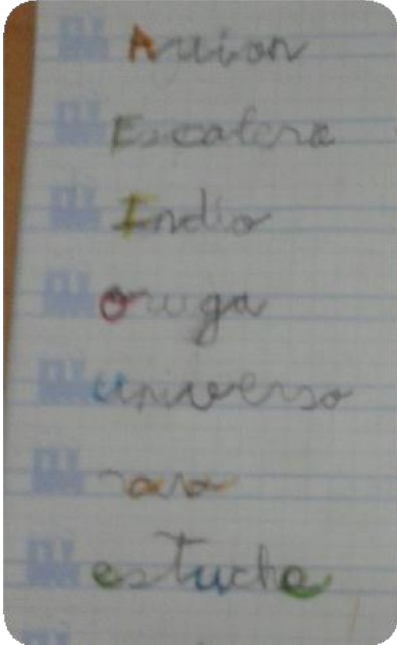 Avion
Escalera
Indio
Oruga
universo
rana
estuche